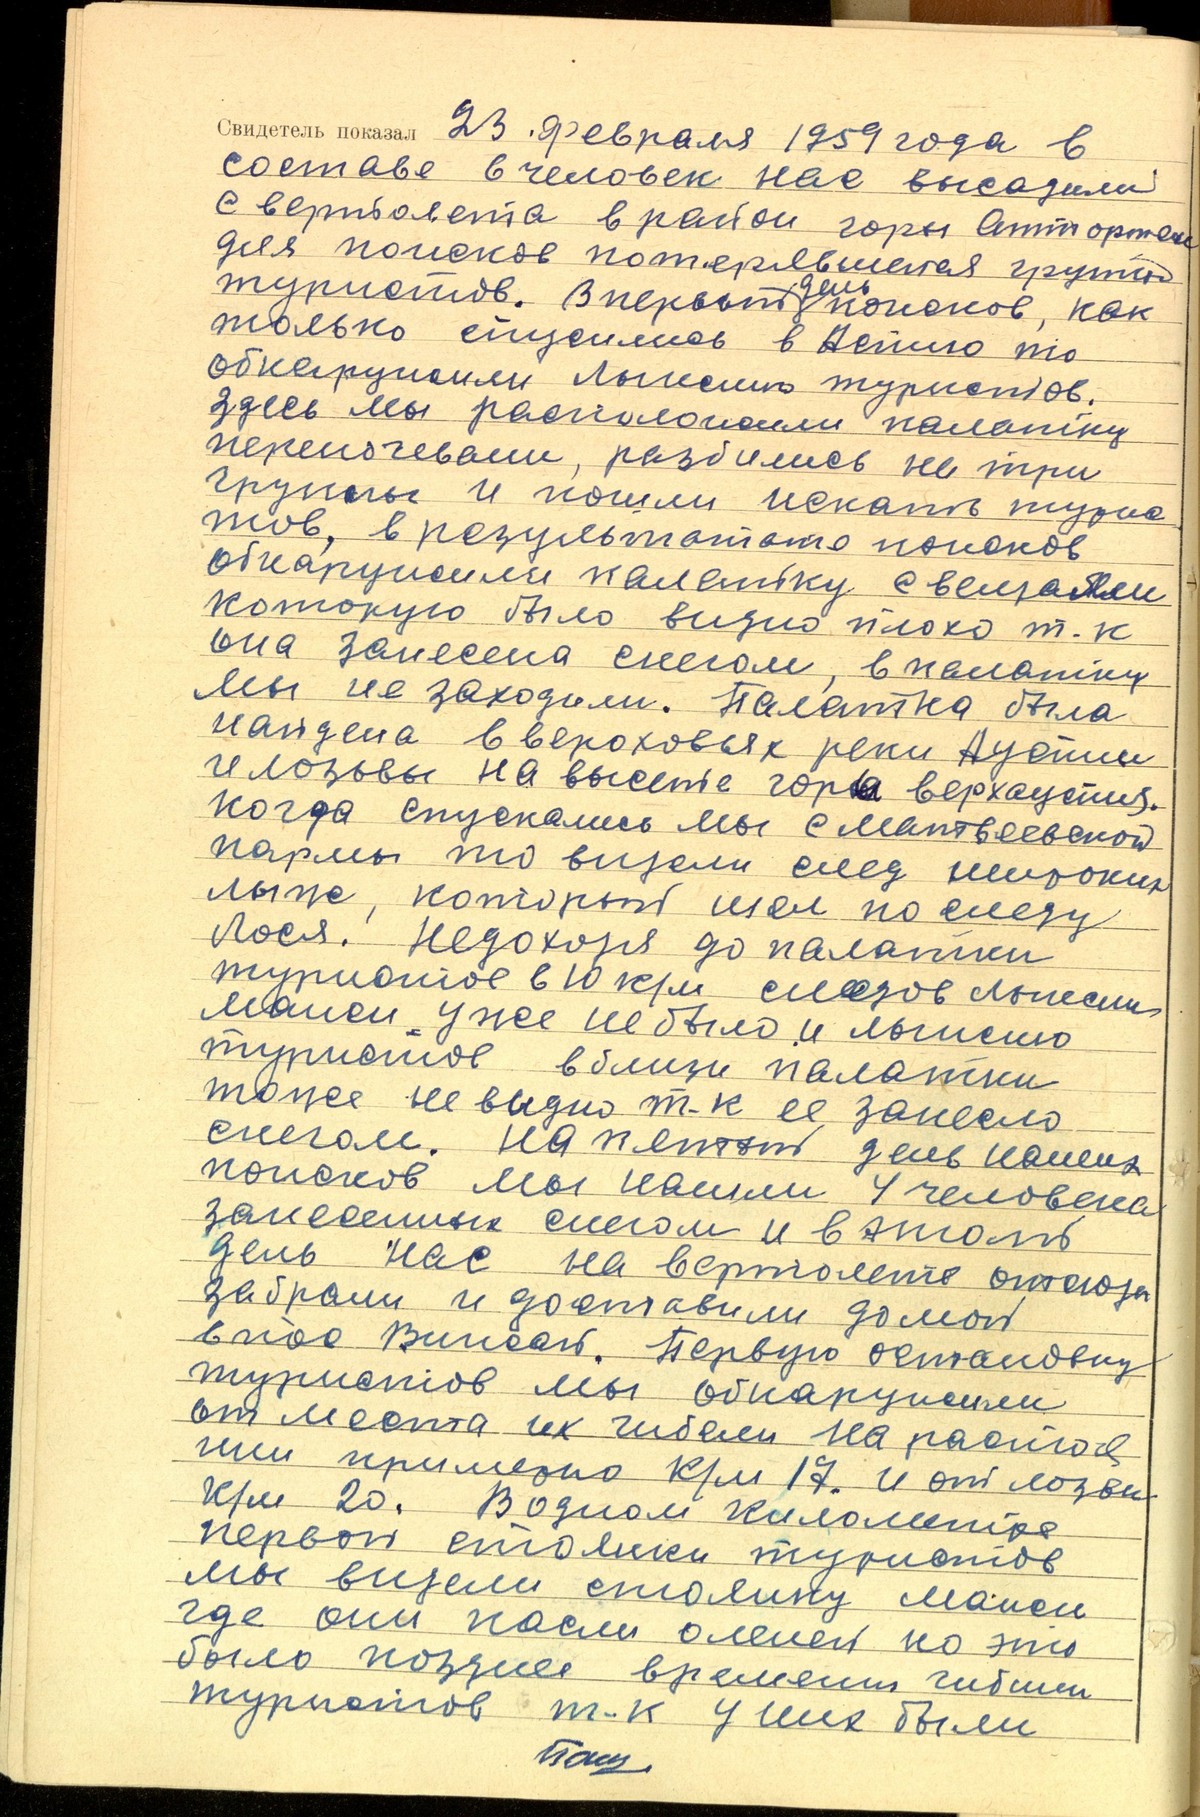 Свидетель показал 23 февраля 1959 года в
составе 6 человек нас высадили
с вертолета в район горы Отортен
для поисков потерявшихся группы
туристов. В первый день поисков, как
только спустились в Аспию то
обнаружили лыжню туристов.
Здесь мы расположили палатку
переночевали, разбились на три
группы и пошли искать турис
тов, в результате поисков
обнаружили палатку с вещами
которую было видно плохо т.к
она занесена снегом, в палатку
мы не заходили. Палатка была
найдена в верховьях реки Ауспии
и лозьвы на высоте горы верхауспия.
когда спускались мы с Матвеевской
пармы то видели след широких
лыж, который шел по следу
Лося. Недоходя до палатки
туристов в 10 к/м следов лыжни
манси уже не было и лыжню
туристов вблизи палатки
тоже не видно т-к ее занесло
снегом. На пятый день наших
поисков мы нашли 4 человека
занесенных снегом и в этот
день нас на вертолете отсюда
забрали и доставили домой
в пос Вижай. Первую остановку
туристов мы обнаружили
от места их гибели на растоя
нии примерно к/м 17. и от лозьвы
к/м 20. В одном километре
первой стоянки туристов
мы видели стоянку манси
где они пасли оленей но это
было позднее времени гибели
туристов т-к у них были